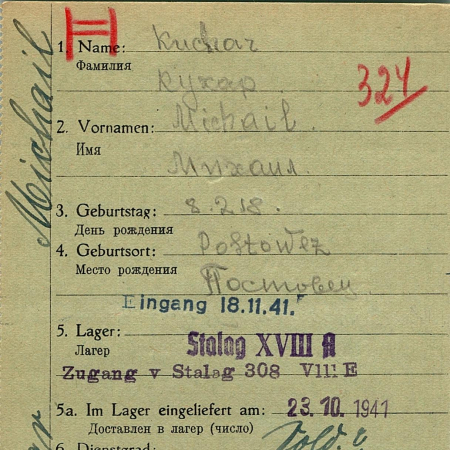 Michail
1. Name: Kuchar
Фамилия
Кухар
324
2. Vornamen: Michail.
Имя
Михаил.
3. Geburtstag: 8.2.18.
День рождения
4. Geburtsort: Postowez
Место рождения
Постовец
Eingang 18.11.41.
5. Lager: Stalag XVIII A
Лагерь
Zugang v Stalag 308 VIII E
5a. Im Lager eingeliefert am: 23. 10. 1941
Доставлен в лагерь (число)
6. Dienstgrad: Sold.